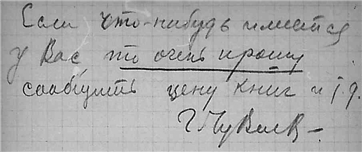 Если что-нибудь имеется
у Вас то очень прошу
сообщить цену книг и т.д.